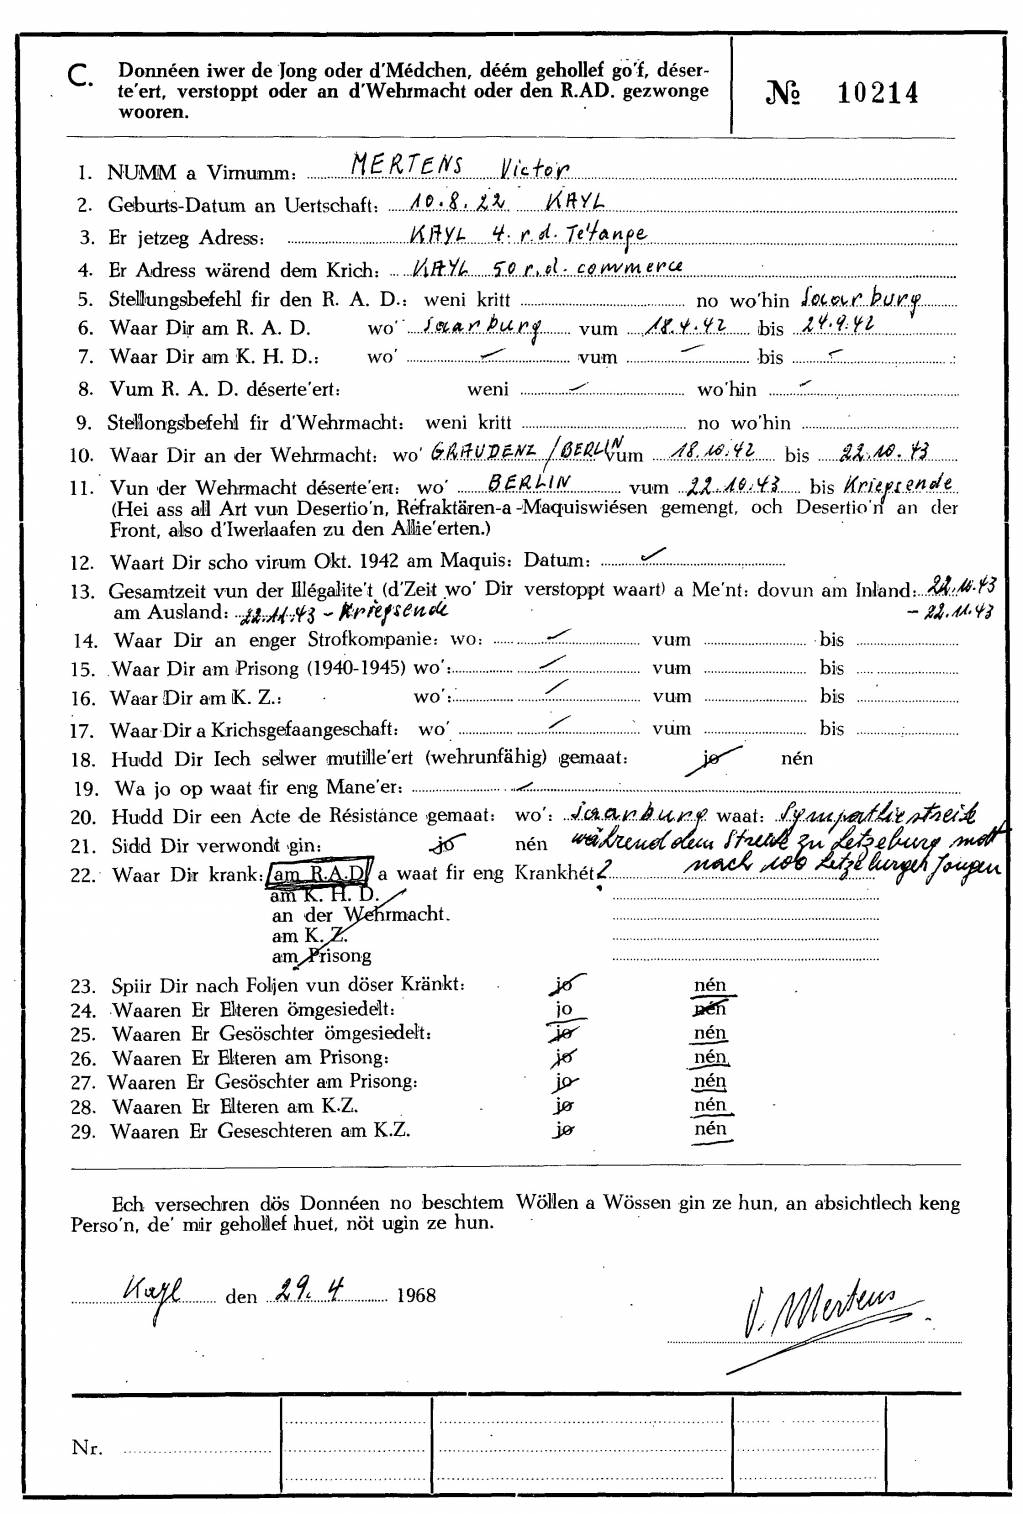 C. Donnéen iwer de Jong oder d'Médchen, déém gehollef gö'f, déser-
te'ert, verstoppt oder an d'Wehrmacht oder den R.AD. gezwonge
wooren.
№ 10214
1. NUMM a Virnumm: MERTENS Victor
2. Geburts-Datum an Uertschaft: 10.8.22 KAYL
3. Er jetzeg Adress: KAYL 4. r.d. Tétange
4. Er Adress wärend dem Krich: KAYL 50 r.d. commerce
5. Stellungsbefehl fir den R. A. D.: weni kritt no wo'hin Saarburg
6. Waar Dir am R. A. D. wo' Saarburg vum 18.4.42 bis 24.9.42
7. Waar Dir am K. H. D.: wo' vum bis
8. Vum R. A. D. déserte'ert: weni wo'hin
9. Stellongsbefehl fir d'Wehrmacht: weni kritt no wo'hin
10. Waar Dir an der Wehrmacht: wo' GRAUDENZ / BERLIN vum 18.10.42 bis 22.10.43
11. Vun der Wehrmacht déserte'ert: wo' BERLIN vum 22.10.43 bis Kriegsende
(Hei ass all Art vun Desertio'n, Refraktären-a-Maquiswiésen gemengt, och Desertio'n an der
Front, also d'Iwerlaafen zu den Allie'erten.)
12. Waart Dir scho virum Okt. 1942 am Maquis: Datum:
13. Gesamtzeit vun der Illégalite't (d'Zeit wo' Dir verstoppt waart) a Me'nt: dovun am Inland: 22.10.43
am Ausland: 22.11.43 - Kriegsende - 22.11.43
14. Waar Dir an enger Strofkompanie: wo: vum bis
15. Waar Dir am Prisong (1940-1945) wo': vum bis
16. Waar Dir am K. Z.: wo': vum bis
17. Waar Dir a Krichsgefaangeschaft: wo' vum bis
18. Hudd Dir Iech selwer mutille'ert (wehrunfähig) gemaat: jo nén
19. Wa jo op waat fir eng Mane'er:
20. Hudd Dir een Acte de Résistance gemaat: wo': Saarburg waat: Sympathiestreik
21. Sidd Dir verwondt gin: jo nén während dem Streik zu Letzeburg mat
22. Waar Dir krank: am R.A.D. a waat fir eng Krankhét? nach 100 Letzeburger Jongen
am K. H. D.
an der Wehrmacht.
am K. Z.
am Prisong
23. Spiir Dir nach Foljen vun döser Kränkt: jo nén
24. Waaren Er Elteren ömgesiedelt: jo nén
25. Waaren Er Gesöschter ömgesiedelt: jo nén
26. Waaren Er Elteren am Prisong: jo nén
27. Waaren Er Gesöschter am Prisong: jo nén
28. Waaren Er Elteren am K.Z. jo nén
29. Waaren Er Geseschteren am K.Z. jo nén
Ech versechren dös Donnéen no beschtem Wöllen a Wössen gin ze hun, an absichtlech keng
Perso'n, de' mir gehollef huet, nöt ugin ze hun.
Kayl den 29. 4 1968
V. Mertens
Nr.